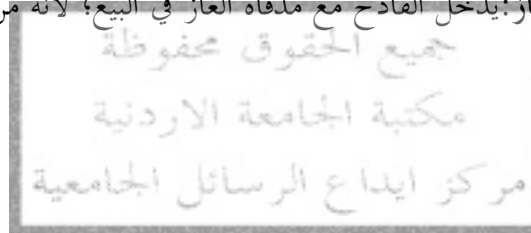 يدخل القادح مع مدفأة الغاز في البيع؛ لأنه
جميع الحقوق محفوظة
مكتبة الجامعة الاردنية
مركز ايداع الرسائل الجامعية